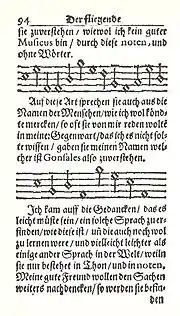 94 Der fliegende
sie zuverstehen / wiewol ich kein guter
Musicus bin / durch diese noten, und
ohne Wörter.
Auf diese Art sprechen sie auch aus die
Namen der Menschen / wie ich wol kön̄-
te mercken / so oft sie von mir reden wolte
in meine Gegenwart / das ich es nicht sol-
te wissen / gaben sie meinen Namen wel-
cher ist Gonsales also zuverstehen.
Ich kam auff die Gedancken / das es
leicht müste sein / ein solche Sprach zu er-
finden / wie diese ist / uñ die auch noch wol
zu lernen were / und vielleicht leichter als
einige ander Sprach in der Welt / weiln
sie nur bestehet in Thon / und in noten,
Meine gute Freund wollen den Sachen
weiters nachdencken / so werden sie befin-
den